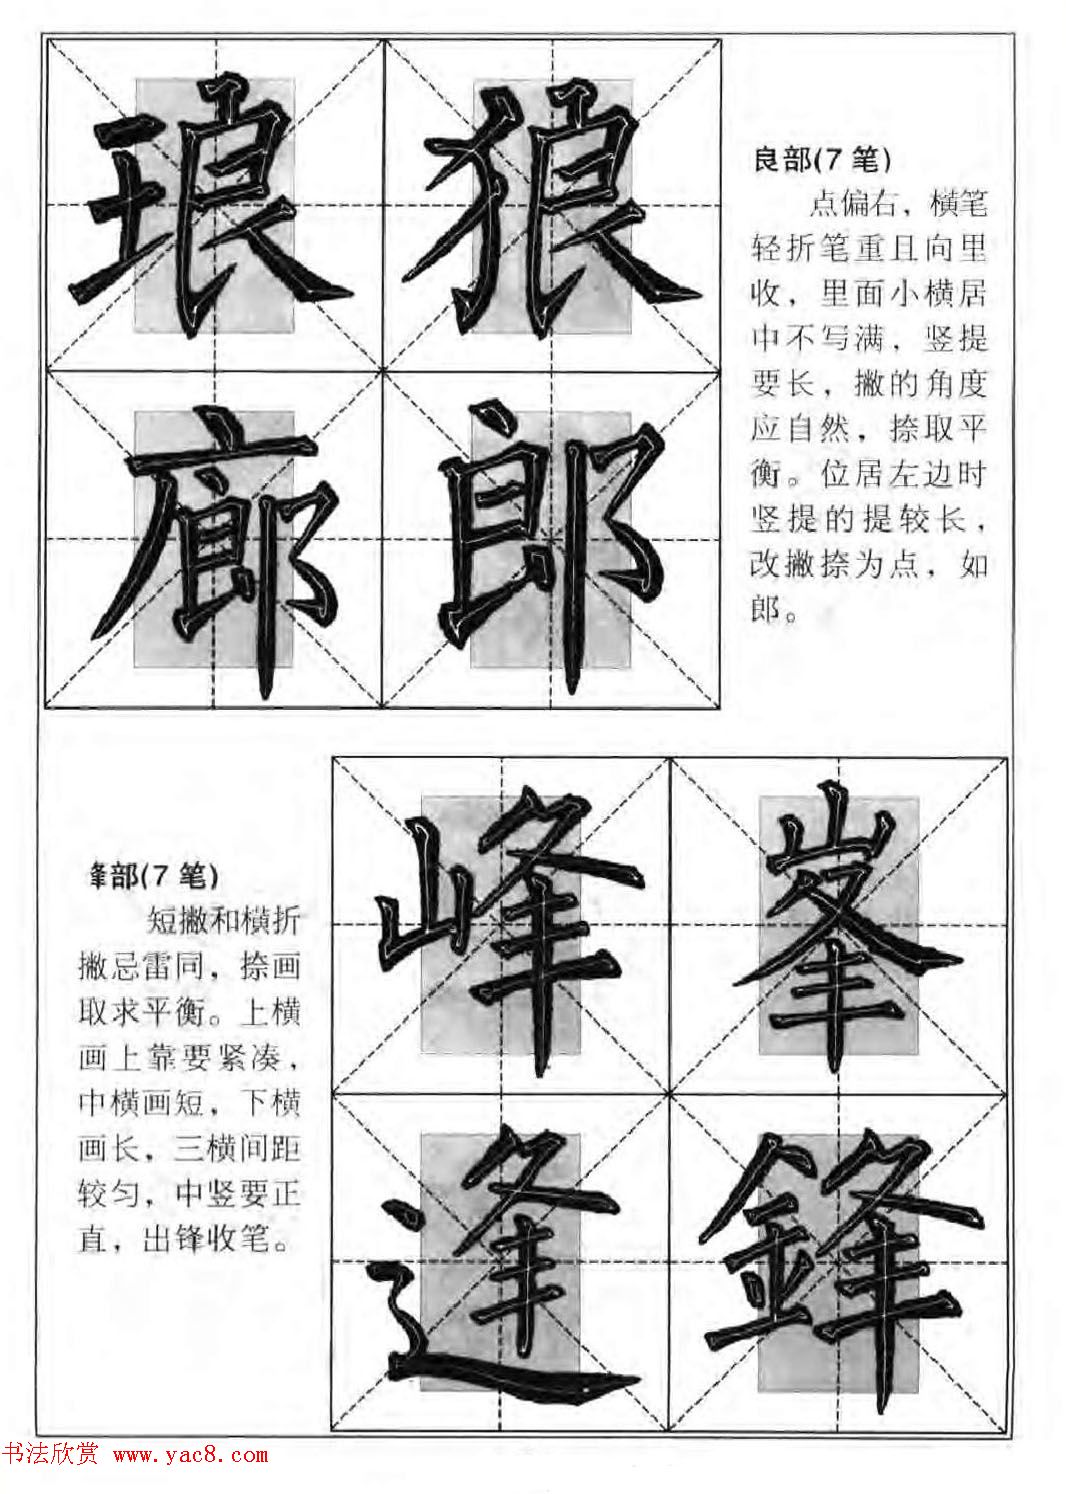 琅狼
良部(7笔)
点偏右，横笔
轻折笔重且向里
收，里面小横居
中不写满，竖提
要长，撇的角度
应自然，捺取平
衡。位居左边时
竖提的提较长，
改撇捺为点，如
郎。
廊郎
峰峯
夆部(7笔)
短撇和横折
撇忌雷同，捺画
取求平衡。上横
画上靠要紧凑，
中横画短，下横
画长，三横间距
较匀，中竖要正
直，出锋收笔。
逢鋒
书法欣赏 www.yac8.com